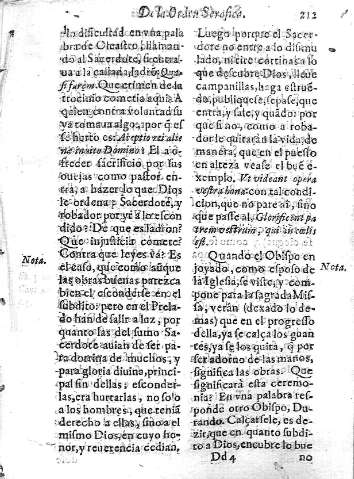 De la Orden Serafica.
212
la dificultad en vna pala
bra de Oleastro, llaman
do al Sacerdote, si entra
ua a la callada, ladrõ, Qua
si furem. Que crimen de la
trocinio cometia aquì? A
quien contra voluntad su
ya tomaua algo, porq̃ es
se hurto es: Acceptio rei alie
ne inuito Domino? El a o-
frecer sacrificio por sus
ouejas como pastor en-
tra, à hazer lo que Dios
le ordena; Sacerdote, y
robador por yr à lo escon
dido? De que es ladron?
Que injusticia comete?
Contra que leyes và? Es
el caso, que como aunque
las obras buenas parezca
bien el esconderse en el
subdito: pero en el Prela-
do han de salir a luz, por
quanto las del sumo Sa-
cerdote auian de ser pa-
ra dotrina de muchos, y
para gloria diuina, princi-
pal fin dellas; esconder-
las, era hurtarlas, no solo
a los hombres, que tenia
derecho a ellas, sino a el
mismo Dios, en cuyo ho-
nor, y reuerencia cedian.
Nota.
Luego porque el Sacer-
dote no entre a lo disimu
lado, ni cite cortina a lo
que descubre Dios, lleue
campanillas, haga estruẽ-
do, publiquese, sepase, que
entra, y sale, y quãdo: por
que si no, como a roba-
dor le quitaràn la vida, de
manera, que en el puesto
en alteza vease el buẽ e-
xemplo. Vt videant opera
vestra bona: con tal condi-
cion, que no pare ai, sino
que passe al, Glorificent pa
trem vestrum, qui in cælis
est.
Quando el Obispo en
joyado, como esposo de
la Iglesia, se viste, y com-
pone para la sagrada Mis-
sa, veràn (dexado lo de
mas) que en el progresso
della, ya se calça los guan
tes, ya se los quita, q̃ por
ser adorno de las manos,
significa las obras. Que
significarà esta ceremo-
nia? En vna palabra res-
ponde otro Obispo, Du-
rando. Calçarsele, es de-
zir, que en quanto subdi-
to a Dios, encubre lo bue
Nota.
Dd 4
no